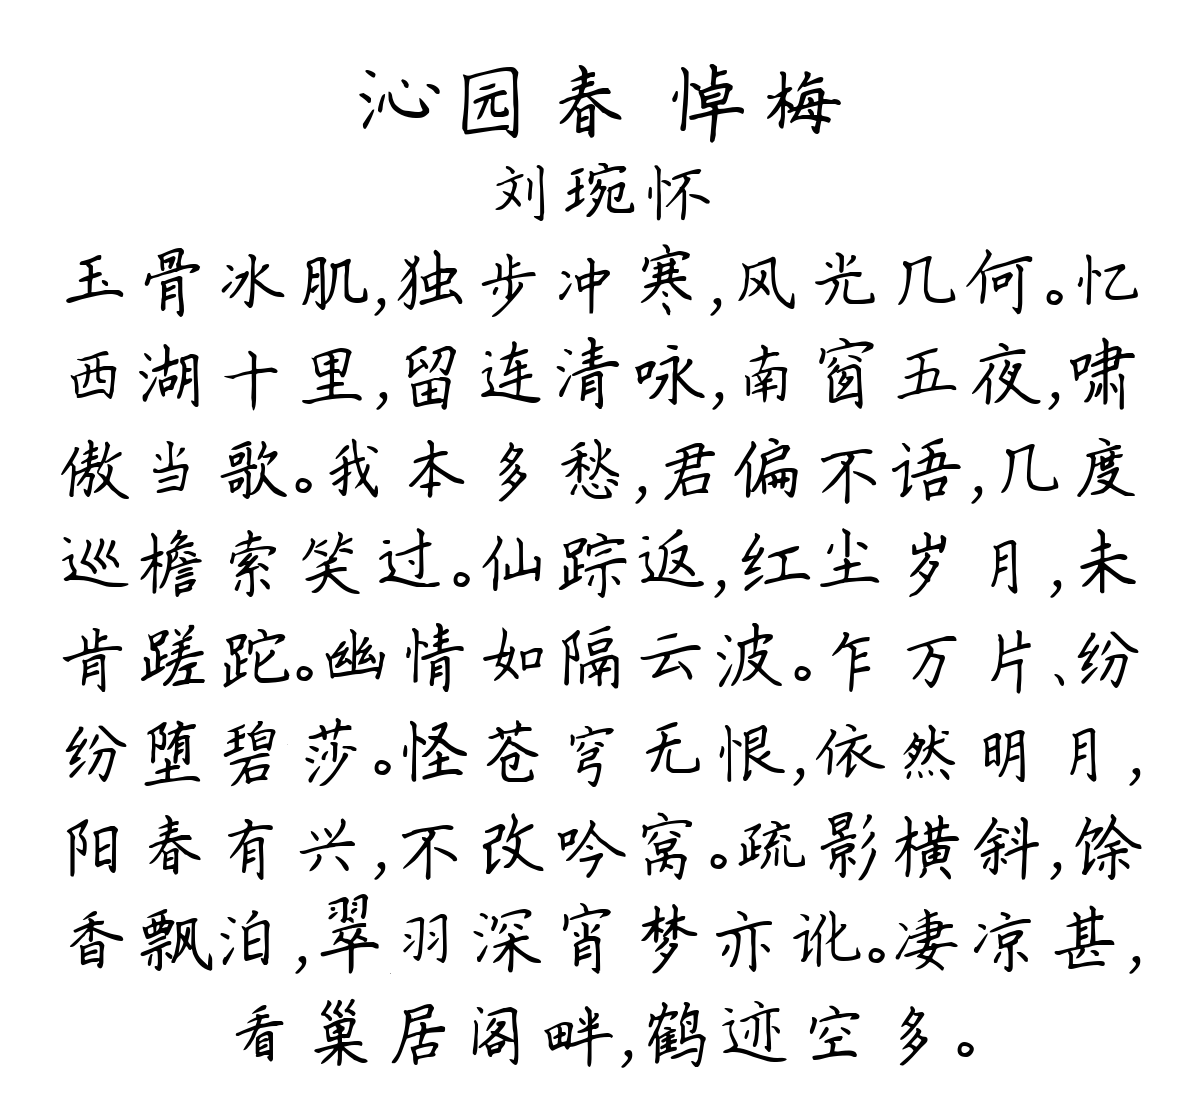 沁园春 悼梅
刘琬怀
玉骨冰肌,独步冲寒,风光几何。忆
西湖十里,留连清咏,南窗五夜,啸
傲当歌。我本多愁,君偏不语,几度
巡檐索笑过。仙踪返,红尘岁月,未
肯蹉跎。幽情如隔云波。乍万片、纷
纷堕碧莎。怪苍穹无恨,依然明月,
阳春有兴,不改吟窝。疏影横斜,馀
香飘泊,翠羽深宵梦亦讹。凄凉甚,
看巢居阁畔,鹤迹空多。